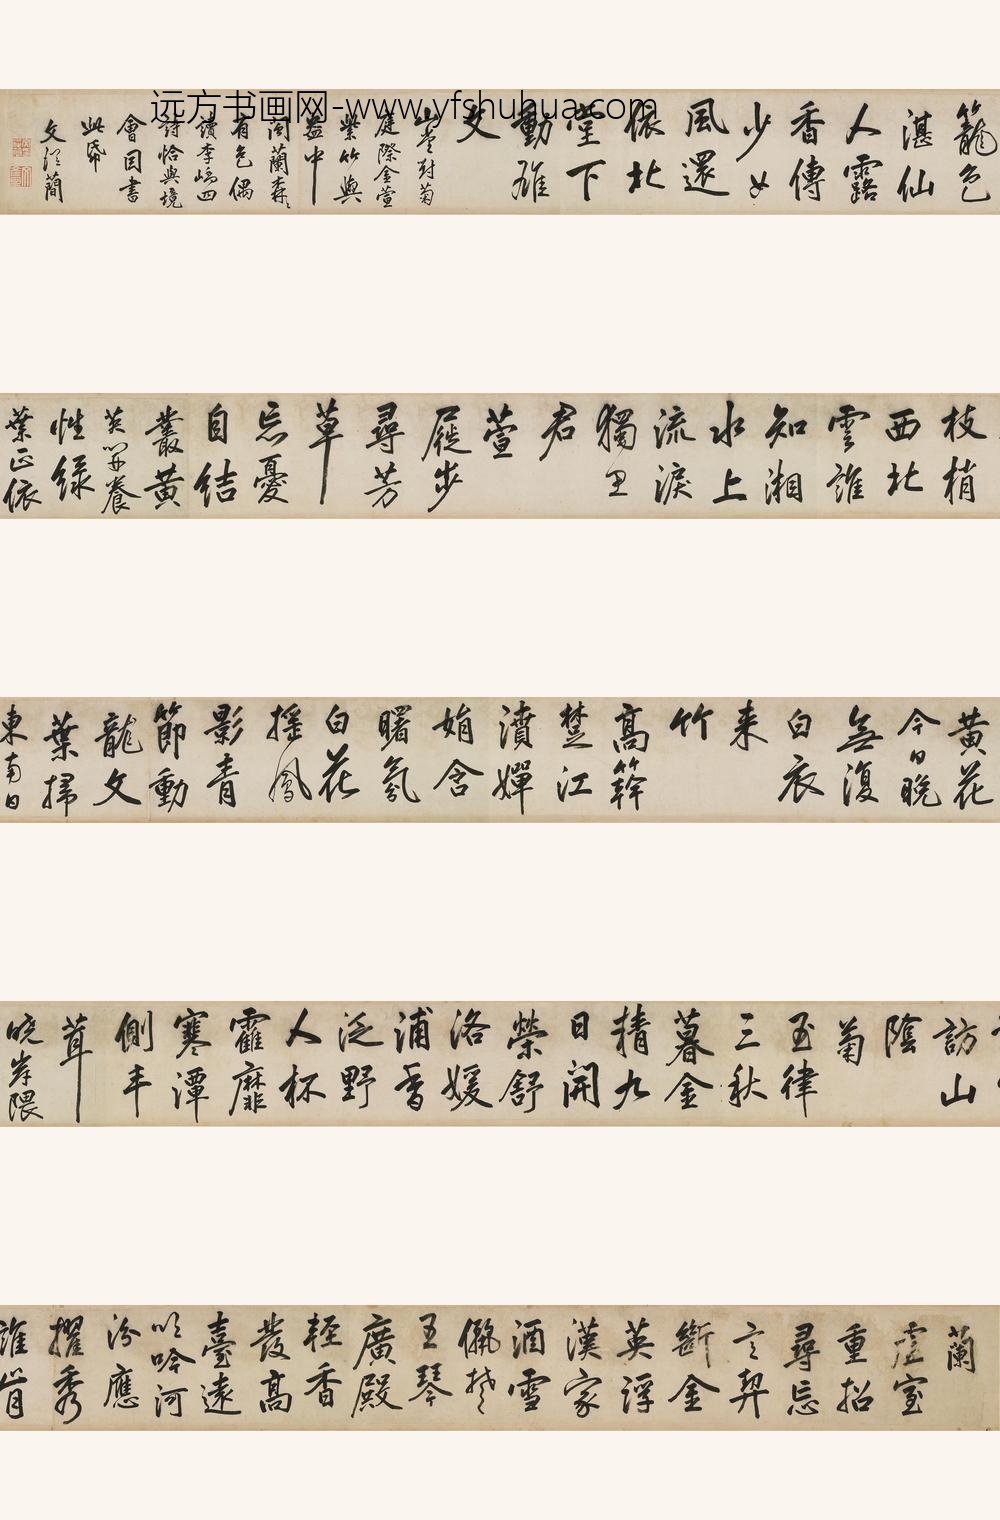 远方书画网-www.yfshuhua.com
蘭
虛室
重招
尋忘
言契
斷金
英浮
漢家
酒雪
儷楚
王琴
廣殿
輕香
發高
臺遠
吹吟河
汾應
擢秀
誰肯
訪山
陰
菊
玉律
三秋
暮金
精九
日開
榮舒
洛媛
浦香
泛野
人杯
霍靡
寒潭
側丰
茸
曉岸隈
黃花
今日晚
無復
白衣
来
竹
高簳
楚江
濆嬋
娟含
曙氛
白花
搖鳳
影青
節動
龍文
葉掃
東南日
枝梢
西北
雲誰
知湘
水上
流淚
獨思
君
萱
屣步
尋芳
草
忘憂
自結
叢黃
英開養
性綠
葉正依
籠色
湛仙
人露
香傳
少女
風還
依北
堂下
動雄
文
山堂對菊
庭際金萱
紫竹與
盆中
閩蘭森森
有色偶
讀李嶠四
詩恰與境
會因書
此帋
文從簡